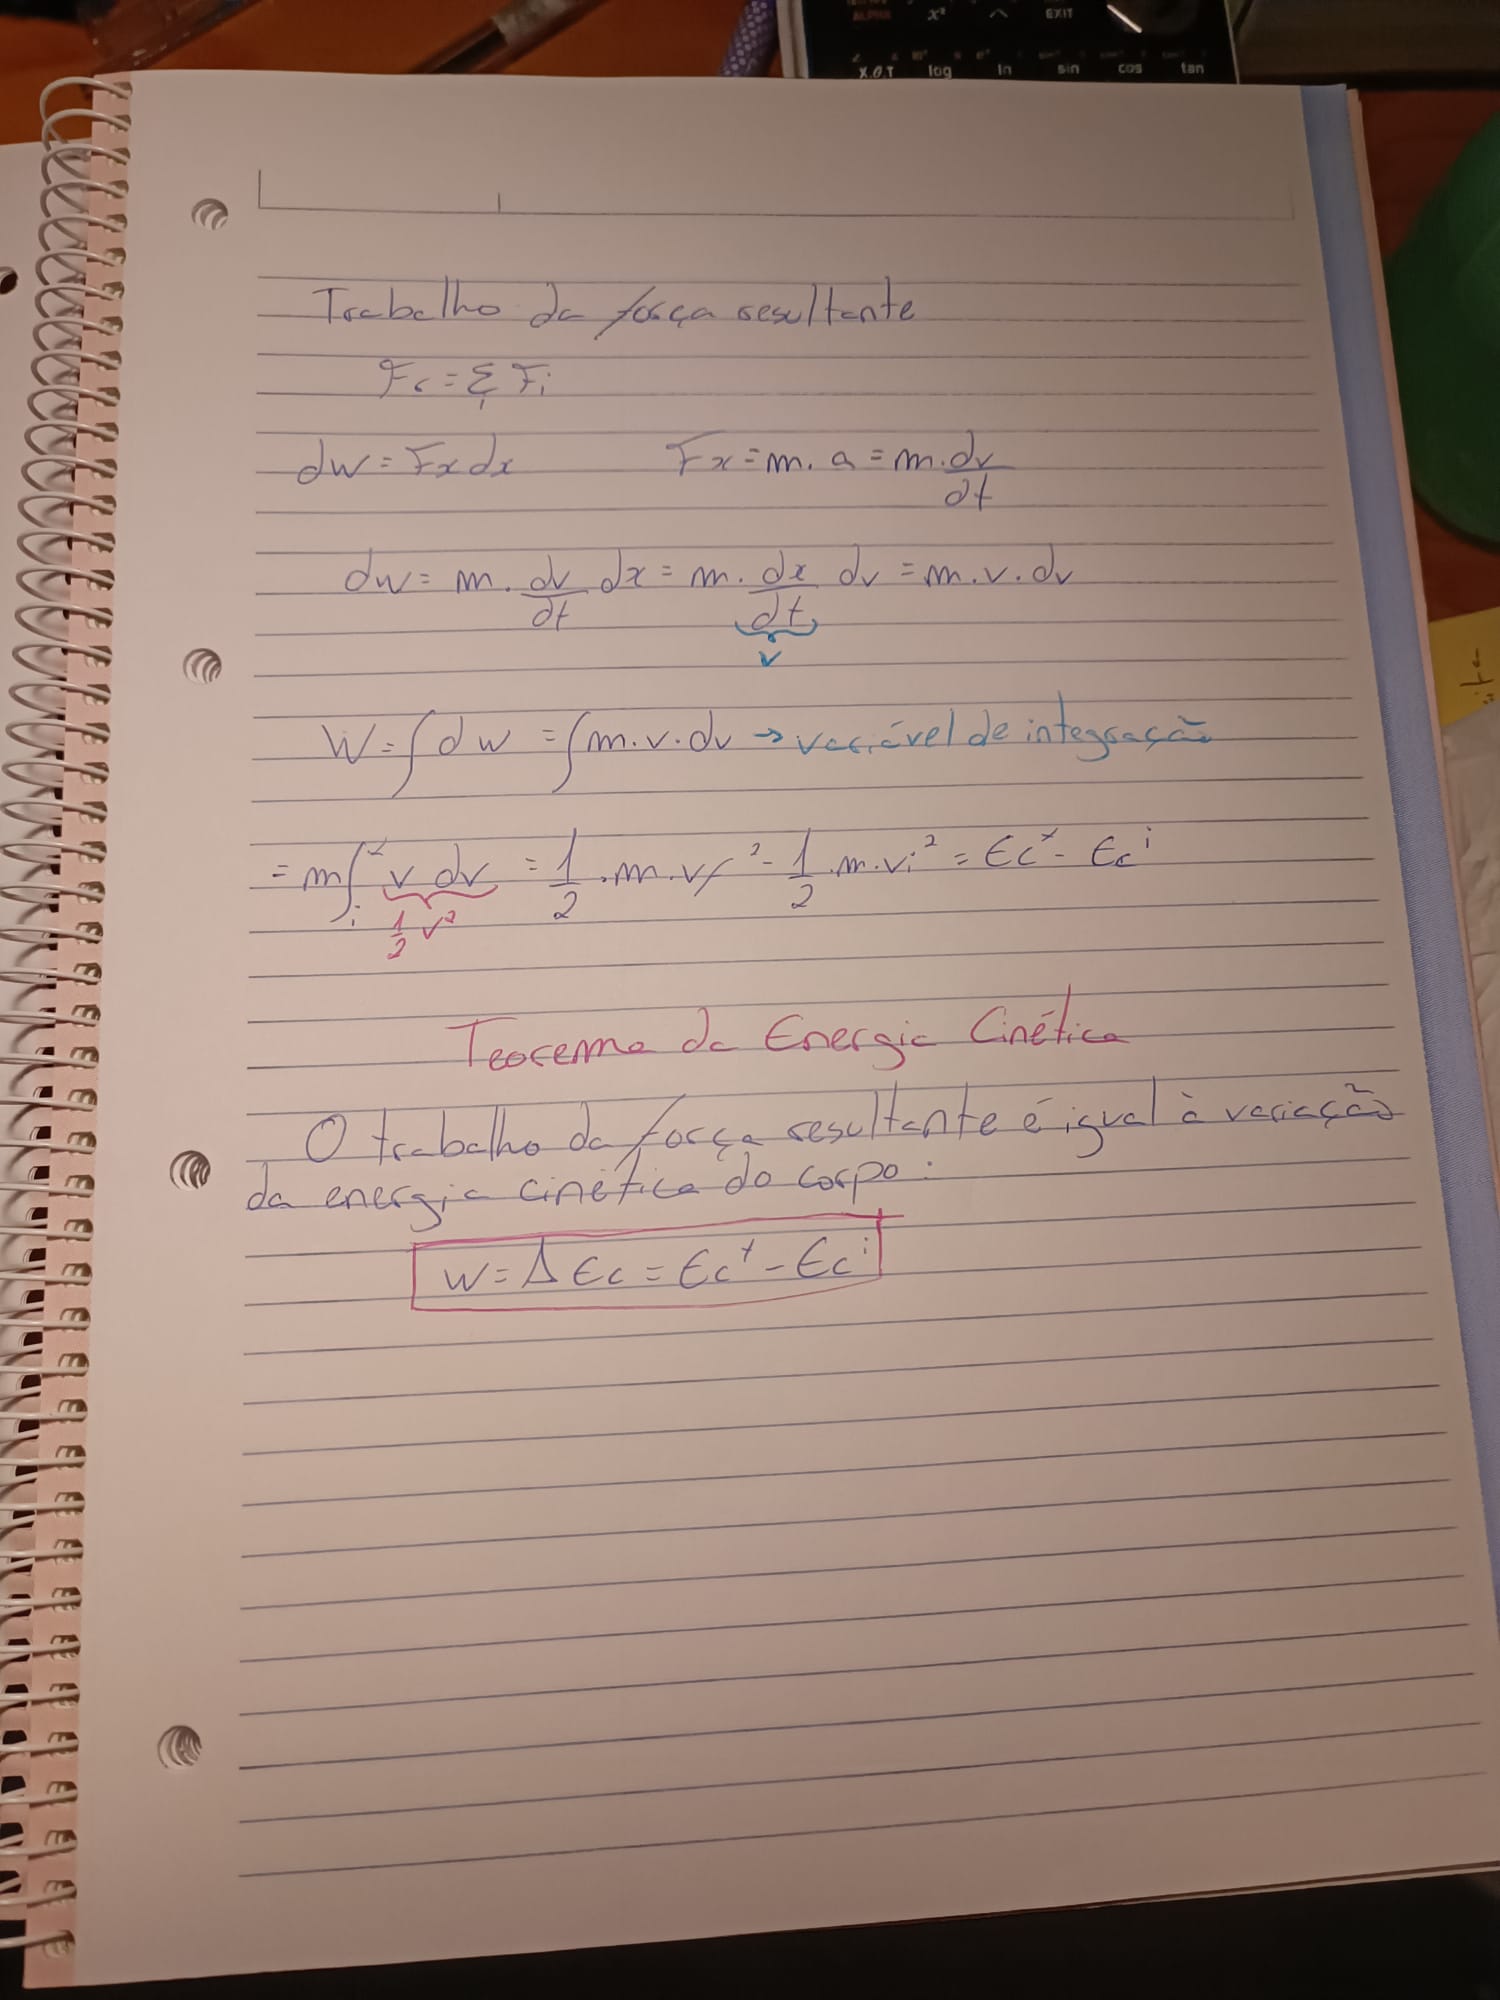 x² ^ EXIT
X,θ,T log ln sin cos tan
Trabalho da força resultante
Fr = Σ Fi
i
dw = Fx dx Fx = m. a = m. dv/dt
dw = m. dv/dt dx = m. dx/dt dv = m.v.dv
v
W = ∫ dw = ∫ m.v.dv → variável de integração
= m ∫ᵢᶠ v dv = 1/2 .m.vf² - 1/2 .m.vi² = Ecᶠ - Ecⁱ
1/2 v²
Teorema da Energia Cinética
O trabalho da força resultante é igual à variação
da energia cinética do corpo:
W = Δ Ec = Ecᶠ - Ecⁱ